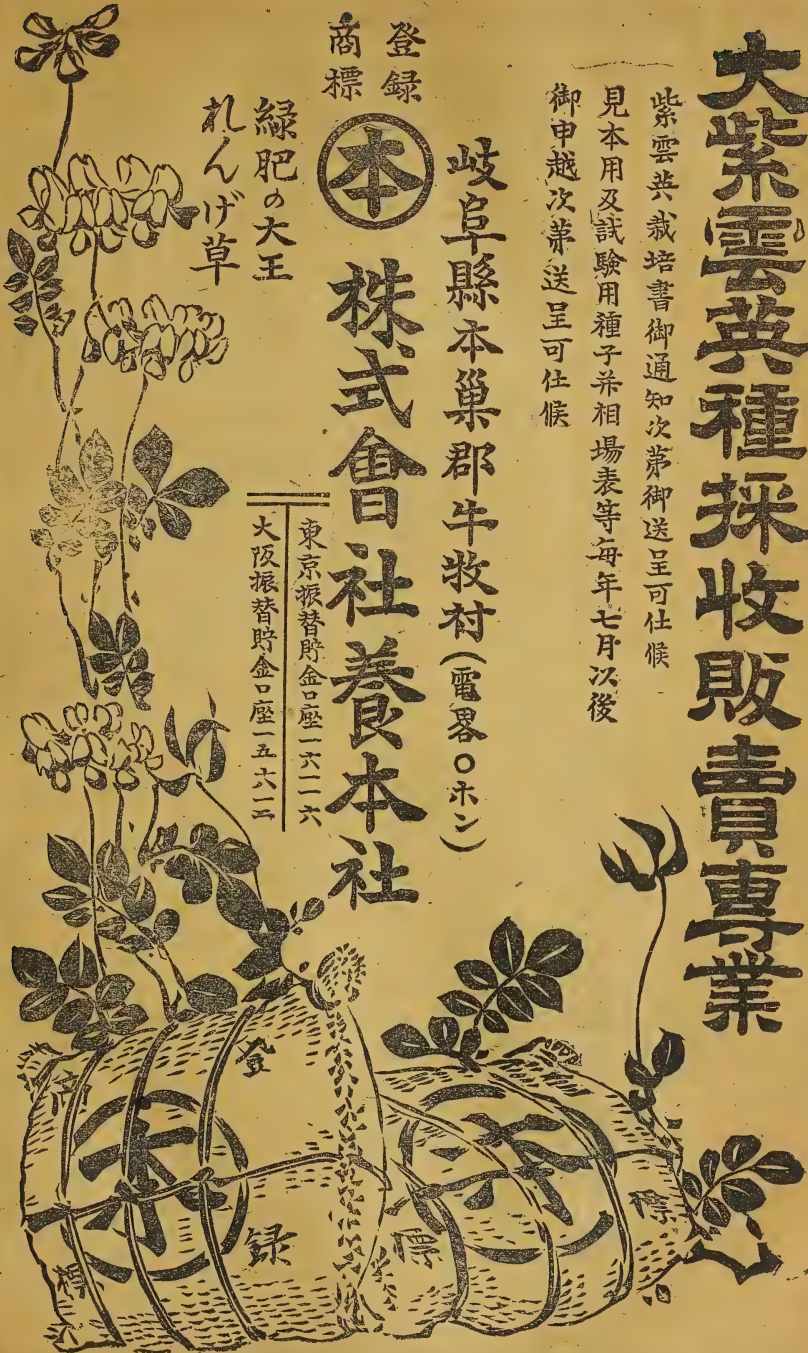 大紫雲英種採收販賣專業
紫雲英栽培書御通知次第御送呈可仕候
見本用及試驗用種子并相場表等每年七月以後
御申越次第送呈可仕候
岐阜縣本巢郡牛牧村(電畧〇ホン)
株式會社養本社
登録
商標
本
東京振替貯金口座一六一一六
大阪振替貯金口座一五六一二
緑肥の大王
れんげ草
登
録
商
標
本
標
本
標